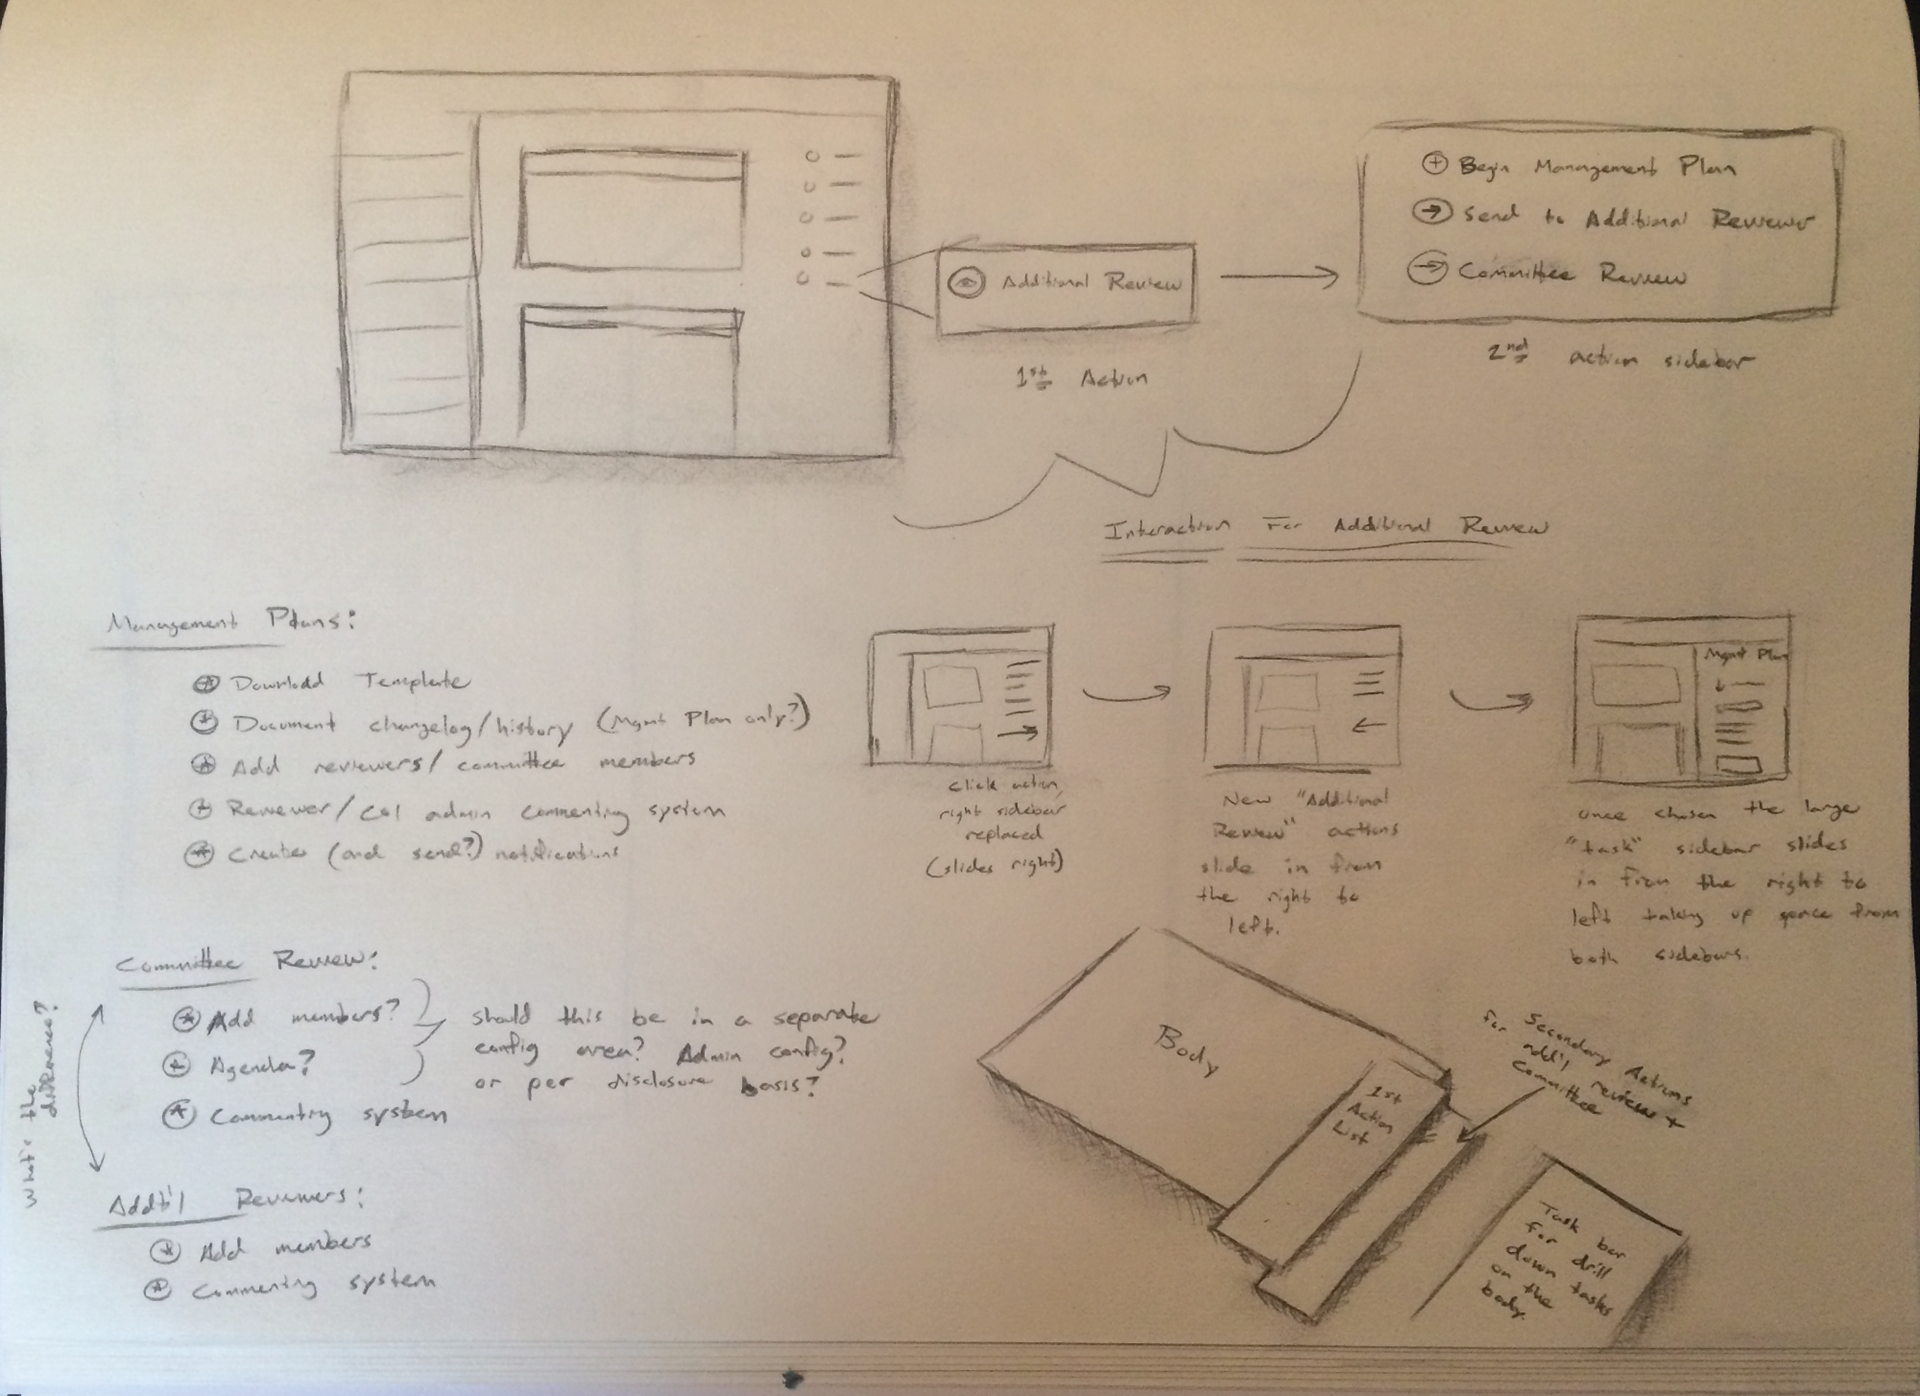 Begin Management Plan
Send to Additional Reviewer
Committee Review
2nd action sidebar
Additional Review
1st Action
Interaction For Additional Review
Management Plans:
Download Template
Document changelog/history (Mgmt Plan only?)
Add reviewers/committee members
Reviewer/COI admin commenting system
Create (and send?) notifications
click action,
right sidebar
replaced
(slides right)
New "Additional
Review" actions
slide in from
the right to
left.
Mgmt Plan
once chosen the large
"task" sidebar slides
in from the right to
left taking up space from
both sidebars.
Committee Review:
Add members?
Agenda?
Commenting system
should this be in a separate
config area? Admin config?
or per disclosure basis?
What's the
difference?
Addt'l Reviewers:
Add members
Commenting system
Body
1st
Action
List
Secondary Actions
for add'l review +
Committee
Task bar
for drill
down tasks
on the
body.